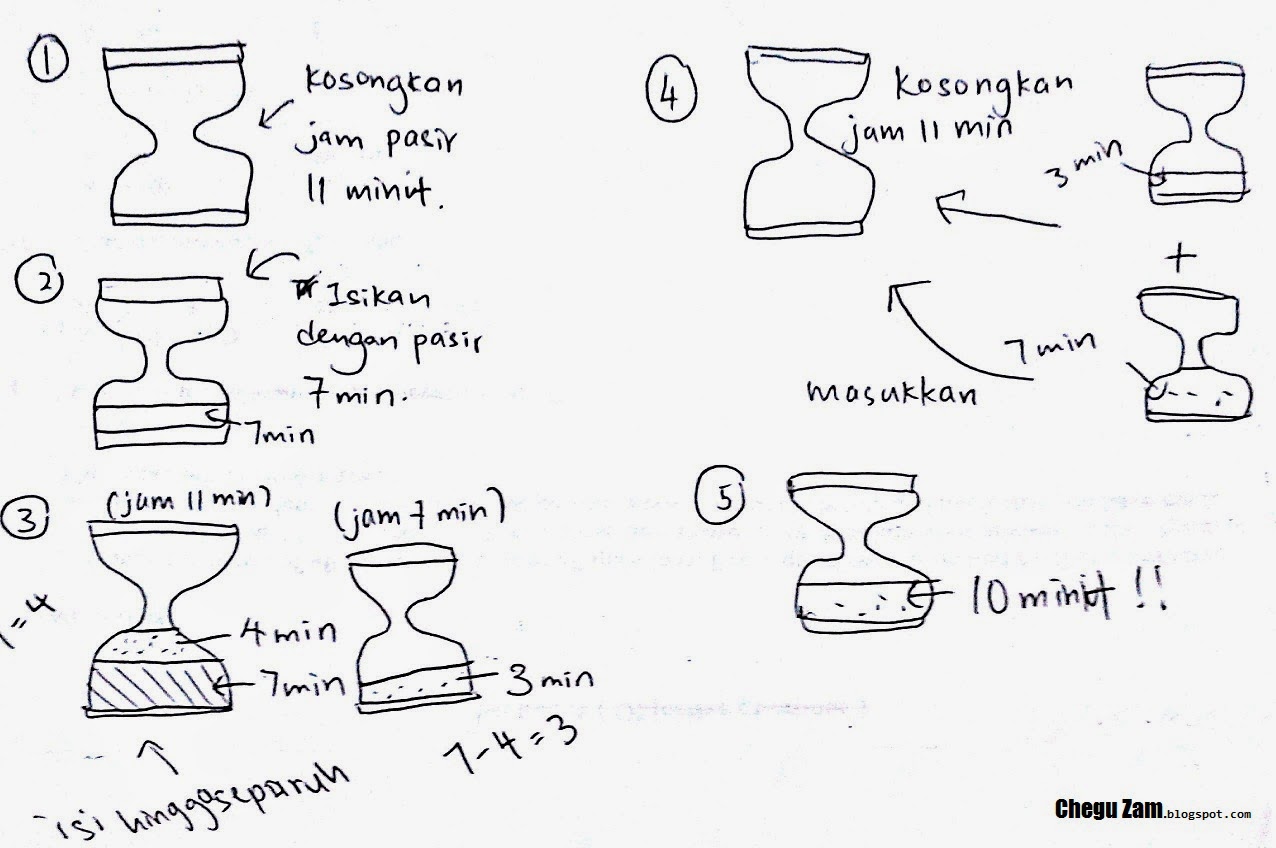 1
kosongkan
jam pasir
11 minit.
2
Isikan
dengan pasir
7 min.
7min
3
(jam 11 min)
(jam 7 min)
=4
4 min
7min
3 min
7-4=3
isi hingga separuh
4
Kosongkan
jam 11 min
3 min
+
7 min
masukkan
5
10 minit !!
Chegu Zam.blogspot.com